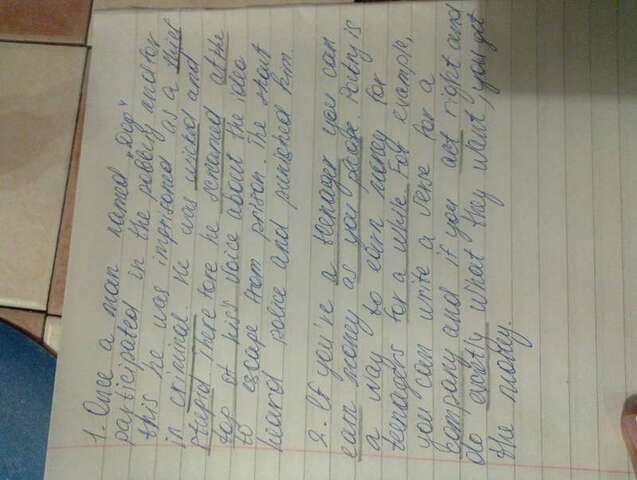 1. Once a man named "Dip"
participated in the robbery and for
this he was imprisoned as a thief
in criminal. He was wicked and
stupid there fore he screamed at the
top of his voice about the idea
to escape from prison. The
heard police and punished him.
2. If you're a teenager you can
earn money as you please. Poetry is
a way to earn money for
teenagers for a while. For example,
you can write a verse for a
company and if you act right and
do exactly what they want, you get
the money.